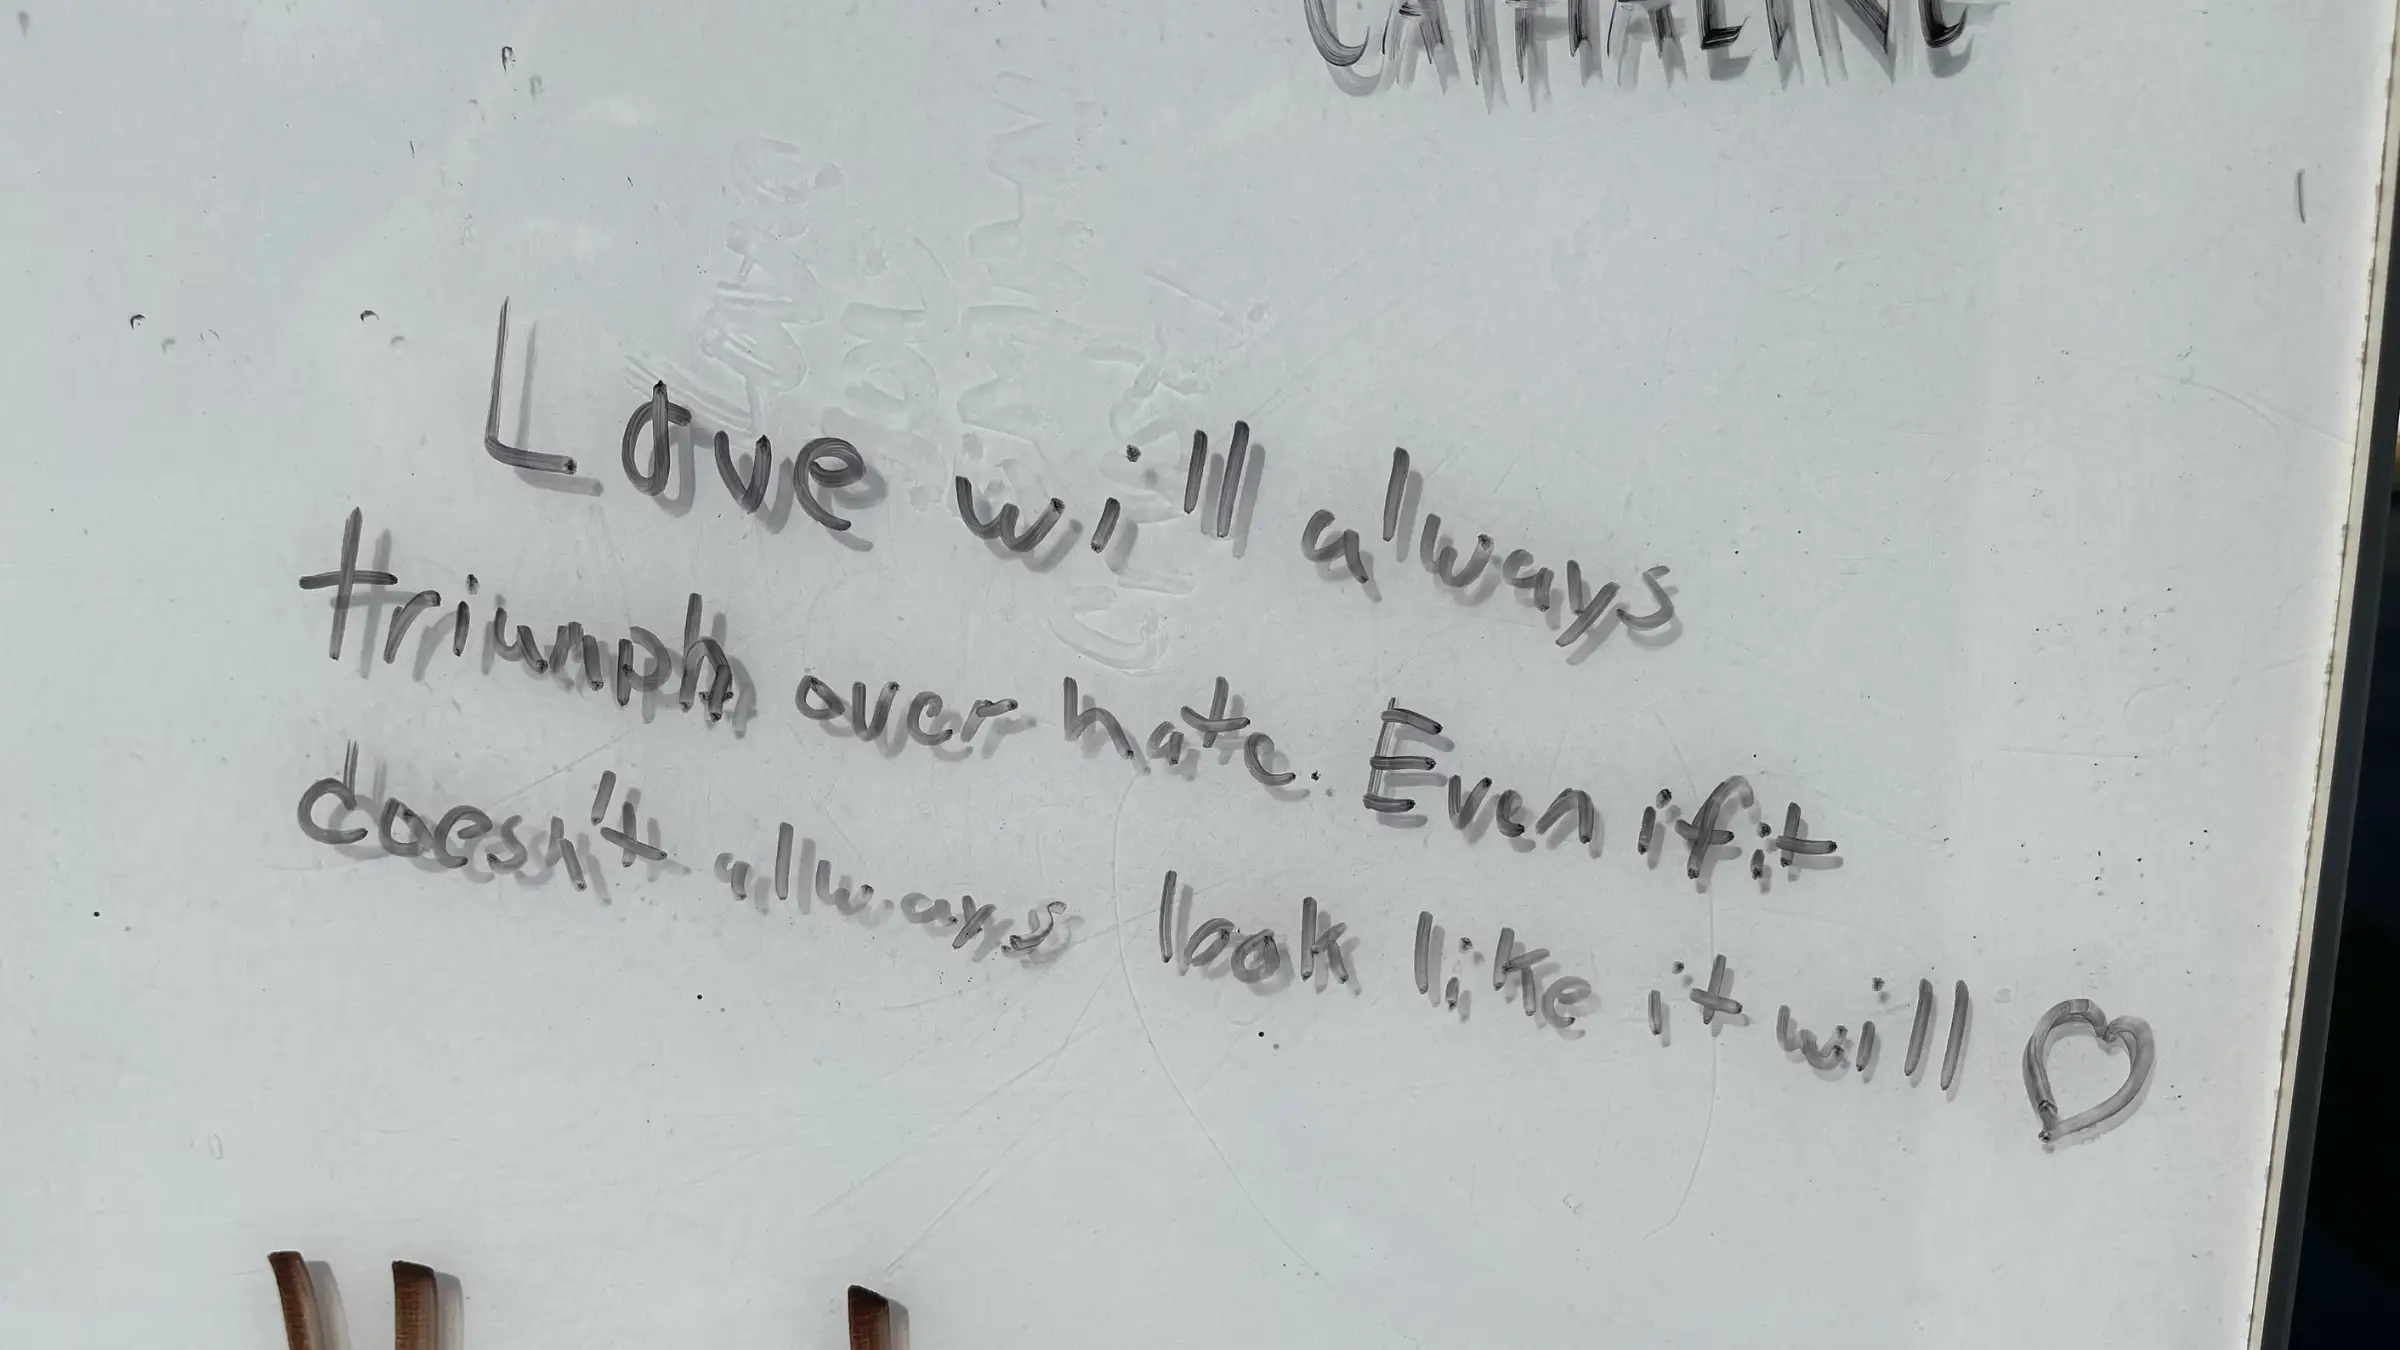 Love will always
triumph over hate. Even if it
doesn't always look like it will ♡